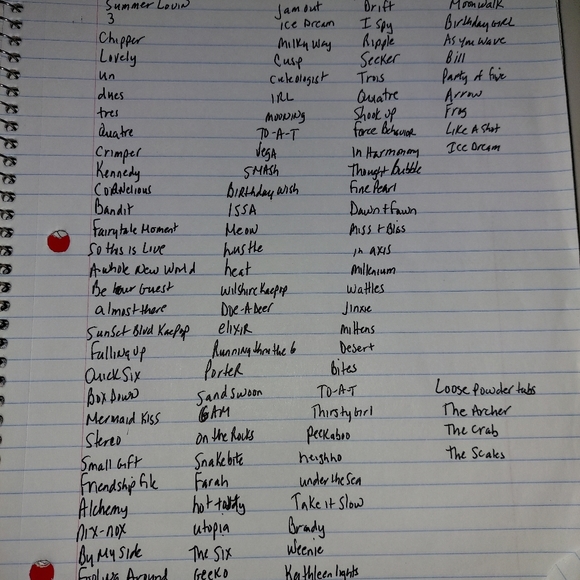 Summer Lovin Jam out Drift Moonwalk
3 Ice Dream I Spy Birthday Girl
Chipper Milky Way Ripple As you Wave
Lovely Cusp Seeker Bill
un cuteologist Trois Party of five
dues IRL Quatre Arrow
tres mooning Shook up Frog
Quatre TO-A-T Force Behavior Like A Shot
Crimper Vega In Harmony Ice Dream
Kennedy SMASH Thought Bubble
Cornelious Birthday wish Fine Pearl
Bandit ISSA Dawn + Fawn
Fairytale Moment Meow Miss + Bliss
So this is Love hustle in axis
A whole New World heat Milknium
Be our Guest wilshire Kaepop Wattles
almost there Doe-A-Deer Jinxie
Sunset Blvd Kaepop elixir mittens
Falling up Running thru the 6 Desert
Quick Six Porter Bites
Box Down Sandswoon TO-A-T Loose Powder tabs
Mermaid Kiss 6AM Thirsty Girl The Archer
Stereo on the Rocks peekaboo The Crab
Small Gift Snakebite heighho the Scales
Friendship file Farah under the Sea
Alchemy hot toddy Take it Slow
nix-nox utopia Brandy
By My Side The Six Weenie
Fooling Around Geeko Kathleen lights